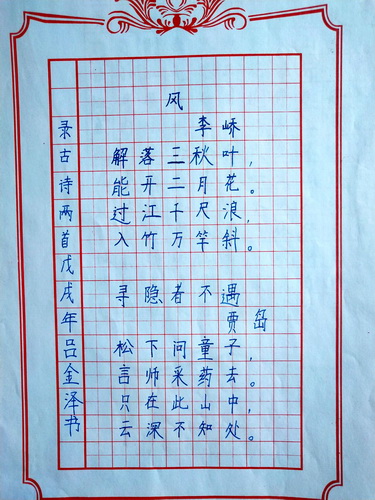 风
李峤
解落三秋叶，
能开二月花。
过江千尺浪，
入竹万竿斜。
寻隐者不遇
贾岛
松下问童子，
言师采药去。
只在此山中，
云深不知处。
录古诗两首戊戌年吕金泽书